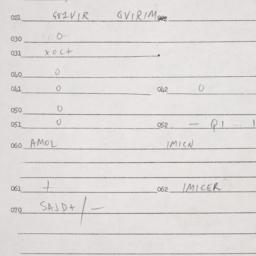 021 GV1VIR GVIRIM
030 O
031 XOC+
040 O
041 O 042 O
050 O
051 O 052 — Q1
060 AMOL IMICN
061 + 062 IMICER
070 SAJD+/—